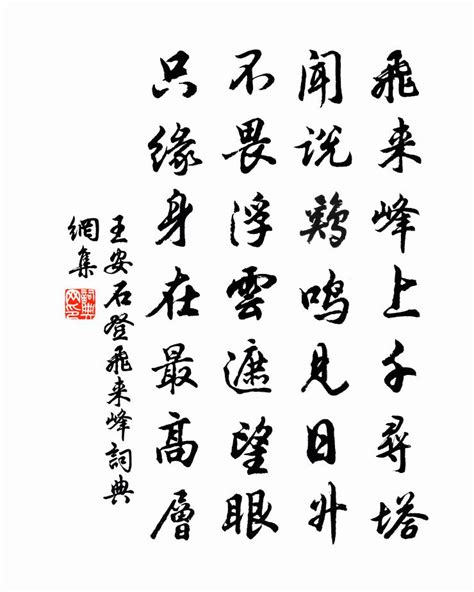 飛来峰上千尋塔
聞說鷄鳴見日升
不畏浮雲遮望眼
只緣身在最高層
王安石登飛来峰詞典
網集
詞典
网印